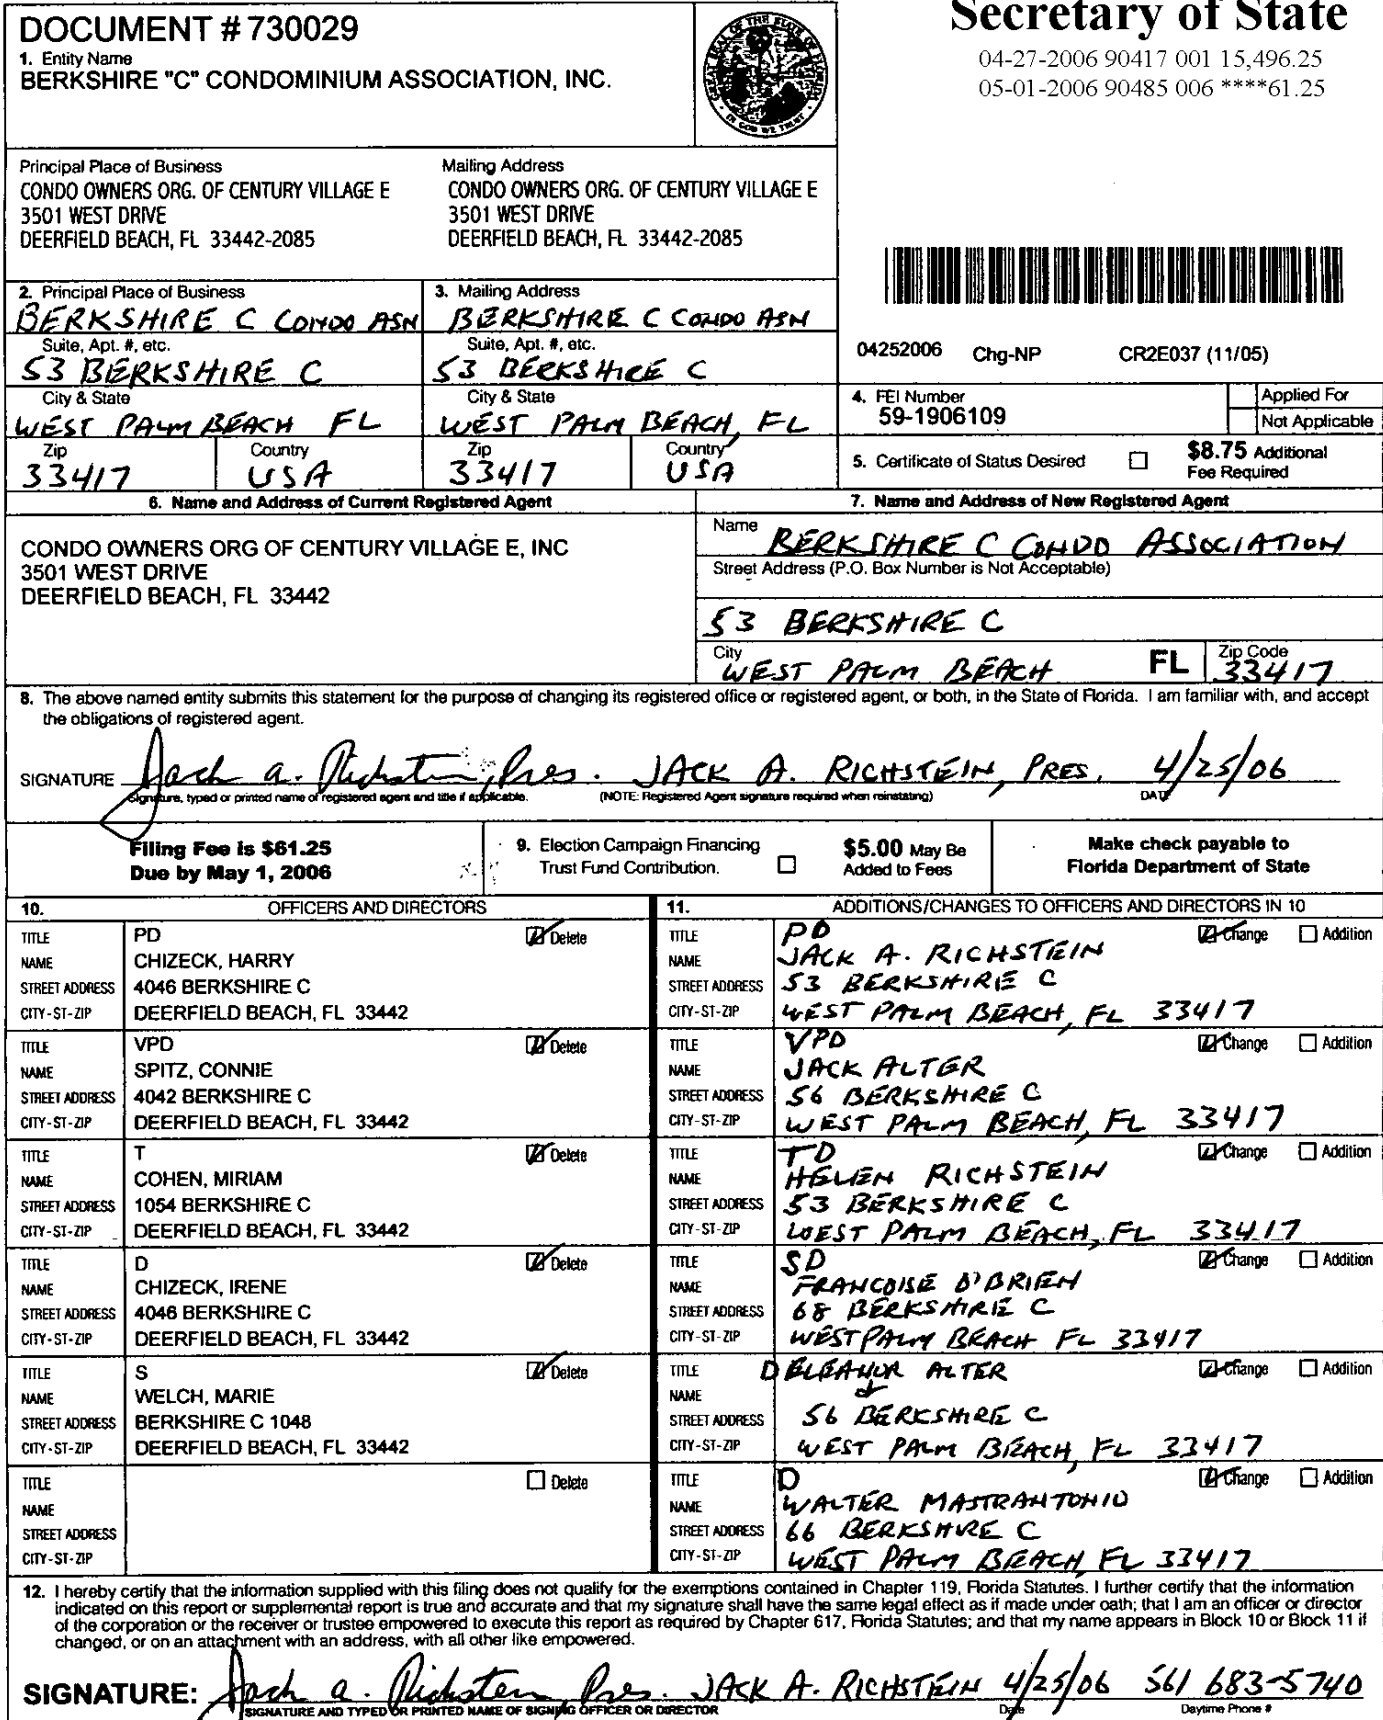 DOCUMENT # 730029
1. Entity Name
BERKSHIRE "C" CONDOMINIUM ASSOCIATION, INC.
GREAT SEAL OF THE STATE OF FLORIDA
IN GOD WE TRUST
Secretary of State
04-27-2006 90417 001 15,496.25
05-01-2006 90485 006 ****61.25
Principal Place of Business
CONDO OWNERS ORG. OF CENTURY VILLAGE E
3501 WEST DRIVE
DEERFIELD BEACH, FL 33442-2085
Mailing Address
CONDO OWNERS ORG. OF CENTURY VILLAGE E
3501 WEST DRIVE
DEERFIELD BEACH, FL 33442-2085
2. Principal Place of Business
BERKSHIRE C CONDO ASN
Suite, Apt. #, etc.
53 BERKSHIRE C
City & State
WEST PALM BEACH FL
Zip
33417
Country
USA
3. Mailing Address
BERKSHIRE C CONDO ASN
Suite, Apt. #, etc.
53 BERKSHIRE C
City & State
WEST PALM BEACH, FL
Zip
33417
Country
USA
04252006 Chg-NP CR2E037 (11/05)
4. FEI Number
59-1906109
Applied For
Not Applicable
5. Certificate of Status Desired
$8.75 Additional
Fee Required
6. Name and Address of Current Registered Agent
CONDO OWNERS ORG OF CENTURY VILLAGE E, INC
3501 WEST DRIVE
DEERFIELD BEACH, FL 33442
7. Name and Address of New Registered Agent
Name BERKSHIRE C CONDO ASSOCIATION
Street Address (P.O. Box Number is Not Acceptable)
53 BERKSHIRE C
City WEST PALM BEACH FL Zip Code 33417
8. The above named entity submits this statement for the purpose of changing its registered office or registered agent, or both, in the State of Florida. I am familiar with, and accept
the obligations of registered agent.
SIGNATURE Jack A. Richstein, Pres. JACK A. RICHSTEIN, PRES. 4/25/06
Signature, typed or printed name of registered agent and title if applicable. (NOTE: Registered Agent signature required when reinstating) DATE
Filing Fee is $61.25
Due by May 1, 2006
9. Election Campaign Financing
Trust Fund Contribution.
$5.00 May Be
Added to Fees
Make check payable to
Florida Department of State
10. OFFICERS AND DIRECTORS
TITLE PD Delete
NAME CHIZECK, HARRY
STREET ADDRESS 4046 BERKSHIRE C
CITY-ST-ZIP DEERFIELD BEACH, FL 33442
TITLE VPD Delete
NAME SPITZ, CONNIE
STREET ADDRESS 4042 BERKSHIRE C
CITY-ST-ZIP DEERFIELD BEACH, FL 33442
TITLE T Delete
NAME COHEN, MIRIAM
STREET ADDRESS 1054 BERKSHIRE C
CITY-ST-ZIP DEERFIELD BEACH, FL 33442
TITLE D Delete
NAME CHIZECK, IRENE
STREET ADDRESS 4046 BERKSHIRE C
CITY-ST-ZIP DEERFIELD BEACH, FL 33442
TITLE S Delete
NAME WELCH, MARIE
STREET ADDRESS BERKSHIRE C 1048
CITY-ST-ZIP DEERFIELD BEACH, FL 33442
TITLE Delete
NAME
STREET ADDRESS
CITY-ST-ZIP
11. ADDITIONS/CHANGES TO OFFICERS AND DIRECTORS IN 10
TITLE PD Change Addition
NAME JACK A. RICHSTEIN
STREET ADDRESS 53 BERKSHIRE C
CITY-ST-ZIP WEST PALM BEACH, FL 33417
TITLE VPD Change Addition
NAME JACK ALTER
STREET ADDRESS 56 BERKSHIRE C
CITY-ST-ZIP WEST PALM BEACH, FL 33417
TITLE TD Change Addition
NAME HELEN RICHSTEIN
STREET ADDRESS 53 BERKSHIRE C
CITY-ST-ZIP WEST PALM BEACH, FL 33417
TITLE SD Change Addition
NAME FRANCOISE O'BRIEN
STREET ADDRESS 68 BERKSHIRE C
CITY-ST-ZIP WEST PALM BEACH FL 33417
TITLE D ELEANOR ALTER Change Addition
NAME
STREET ADDRESS 56 BERKSHIRE C
CITY-ST-ZIP WEST PALM BEACH, FL 33417
TITLE D Change Addition
NAME WALTER MASTRANTONIO
STREET ADDRESS 66 BERKSHIRE C
CITY-ST-ZIP WEST PALM BEACH, FL 33417
12. I hereby certify that the information supplied with this filing does not qualify for the exemptions contained in Chapter 119, Florida Statutes. I further certify that the information
indicated on this report or supplemental report is true and accurate and that my signature shall have the same legal effect as if made under oath; that I am an officer or director
of the corporation or the receiver or trustee empowered to execute this report as required by Chapter 617, Florida Statutes; and that my name appears in Block 10 or Block 11 if
changed, or on an attachment with an address, with all other like empowered.
SIGNATURE: Jack A. Richstein, Pres. JACK A. RICHSTEIN 4/25/06 561 683-5740
SIGNATURE AND TYPED OR PRINTED NAME OF SIGNING OFFICER OR DIRECTOR Date Daytime Phone #